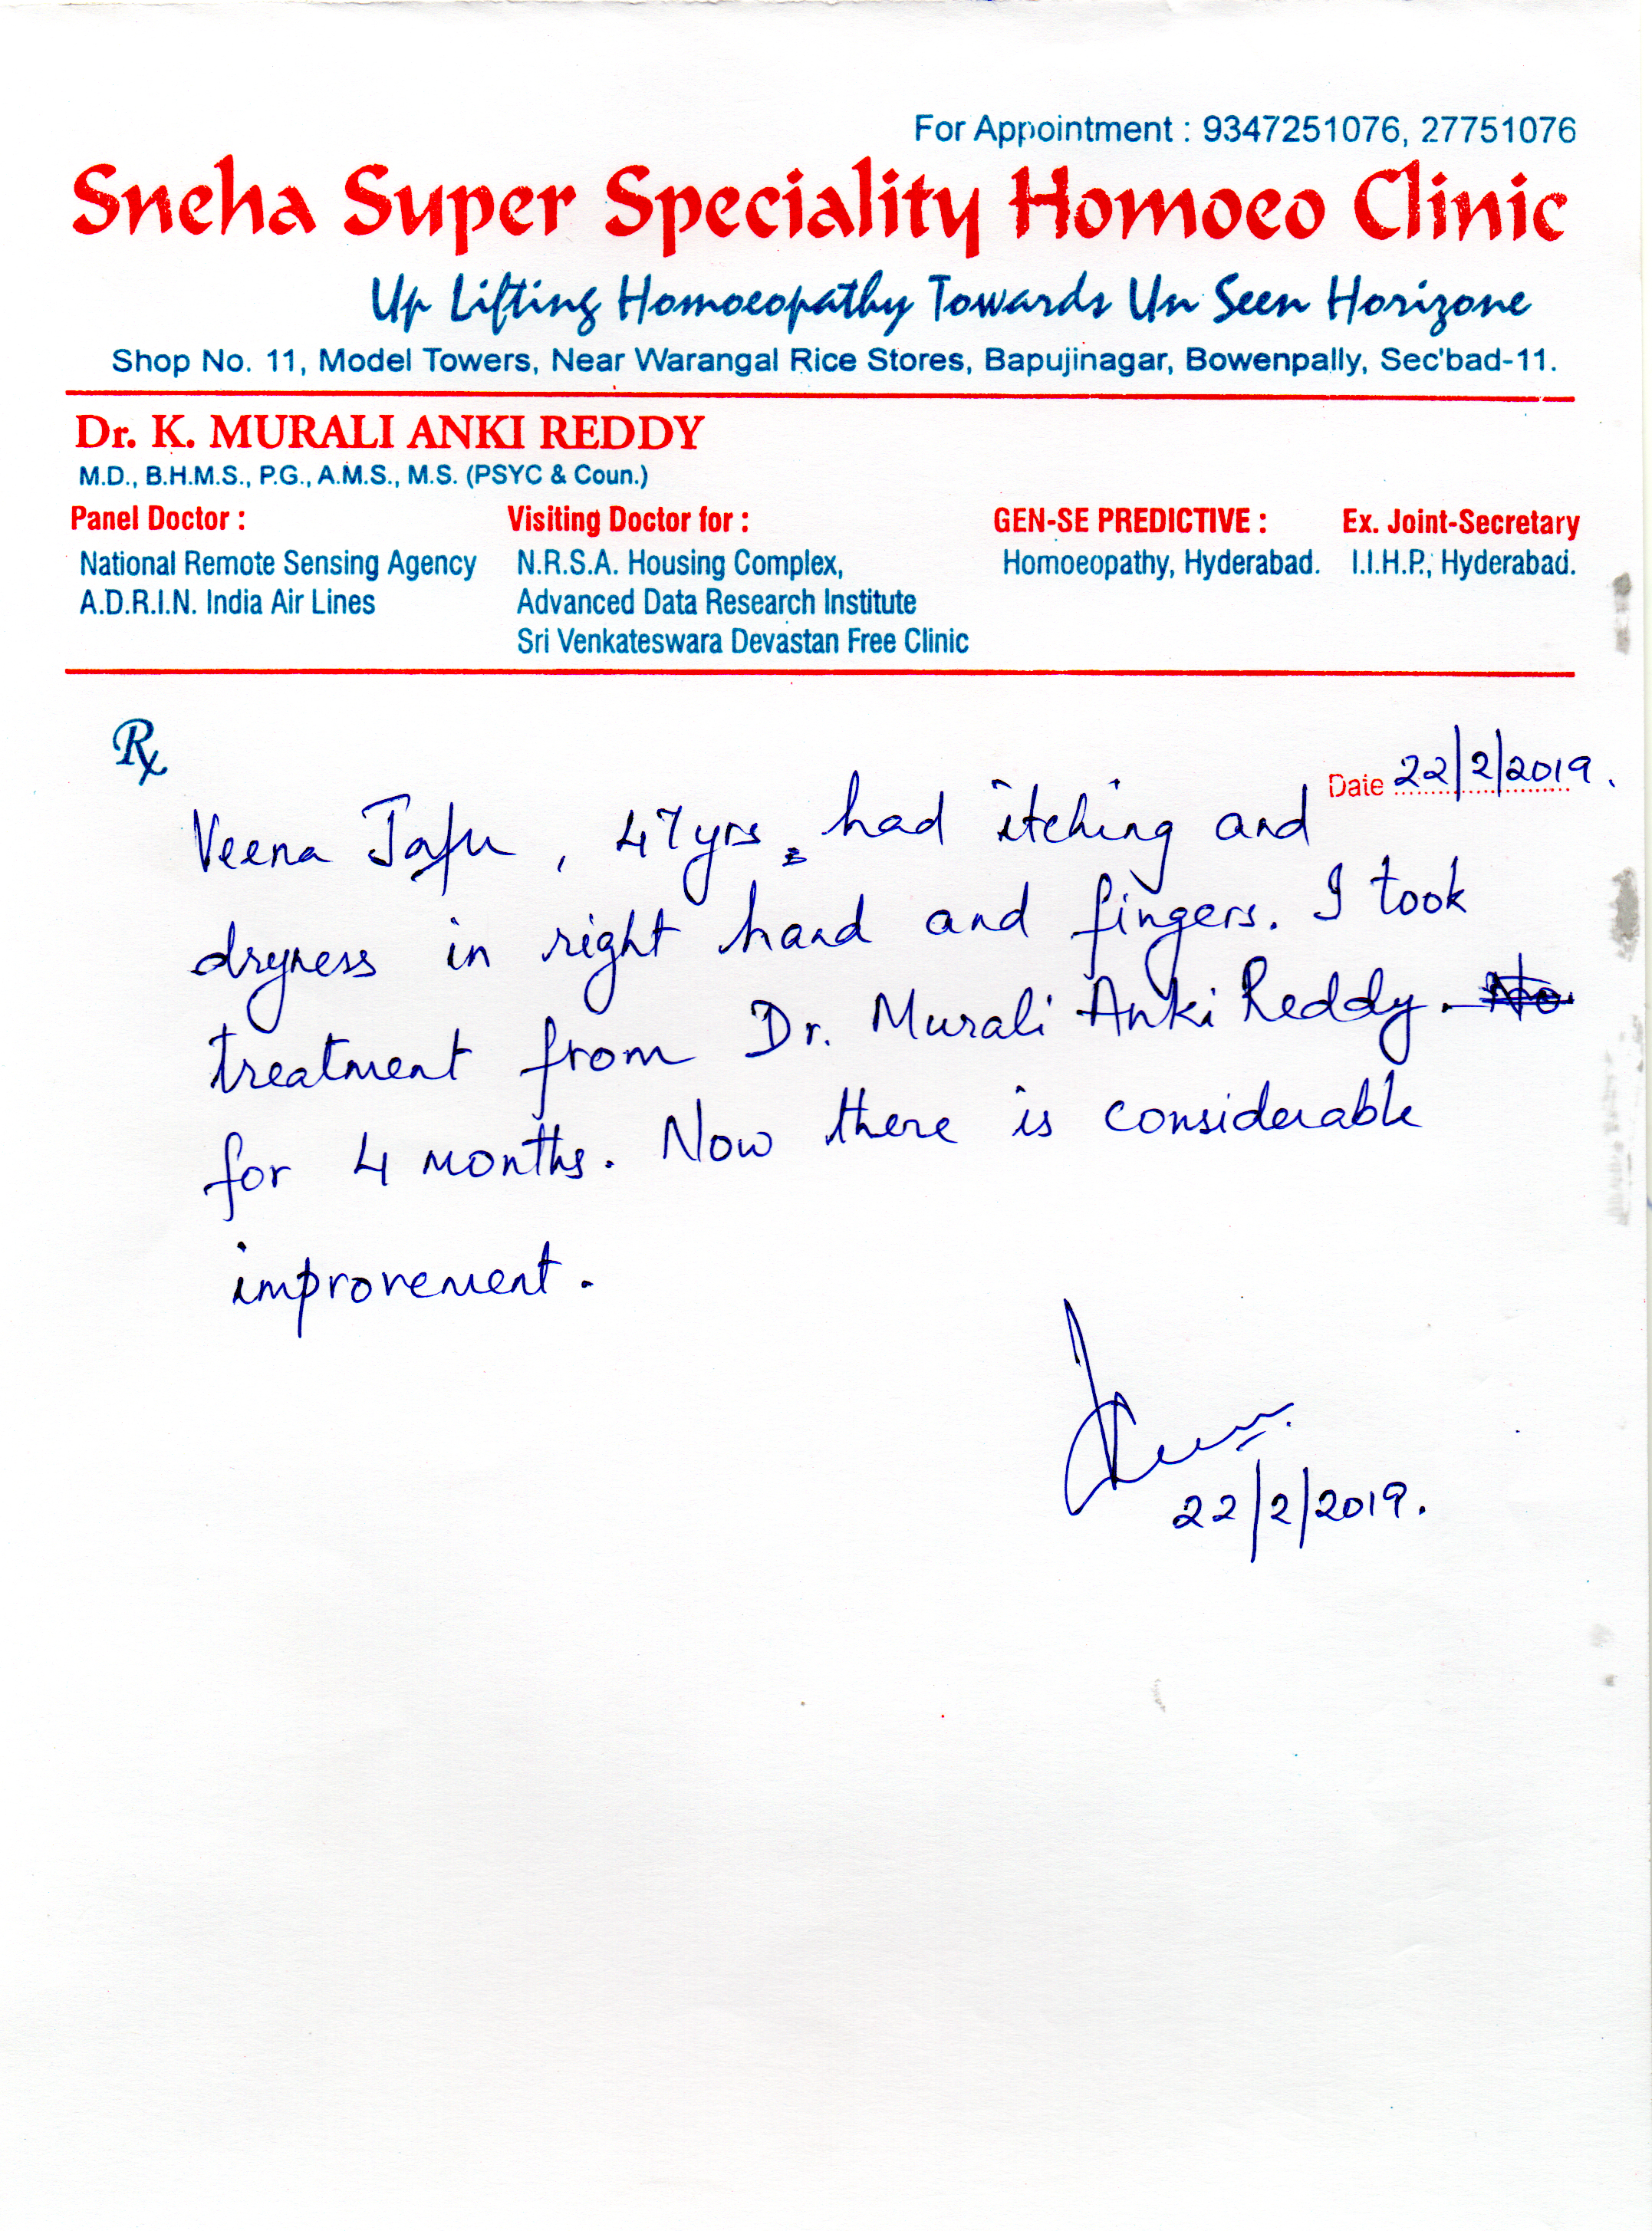 For Appointment : 9347251076, 27751076
Sneha Super Speciality Homoeo Clinic
Up Lifting Homoeopathy Towards Un Seen Horizone
Shop No. 11, Model Towers, Near Warangal Rice Stores, Bapujinagar, Bowenpally, Sec'bad-11.
Dr. K. MURALI ANKI REDDY
M.D., B.H.M.S., P.G., A.M.S., M.S. (PSYC & Coun.)
Panel Doctor :
National Remote Sensing Agency
A.D.R.I.N. India Air Lines
Visiting Doctor for :
N.R.S.A. Housing Complex,
Advanced Data Research Institute
Sri Venkateswara Devastan Free Clinic
GEN-SE PREDICTIVE :
Homoeopathy, Hyderabad.
Ex. Joint-Secretary
I.I.H.P., Hyderabad.
Rx
Date 22/2/2019.
Veena , 47yrs, had itching and
dryness in right hand and fingers. I took
treatment from Dr. Murali Anki Reddy.
for 4 months. Now there is considerable
improvement.
22/2/2019.